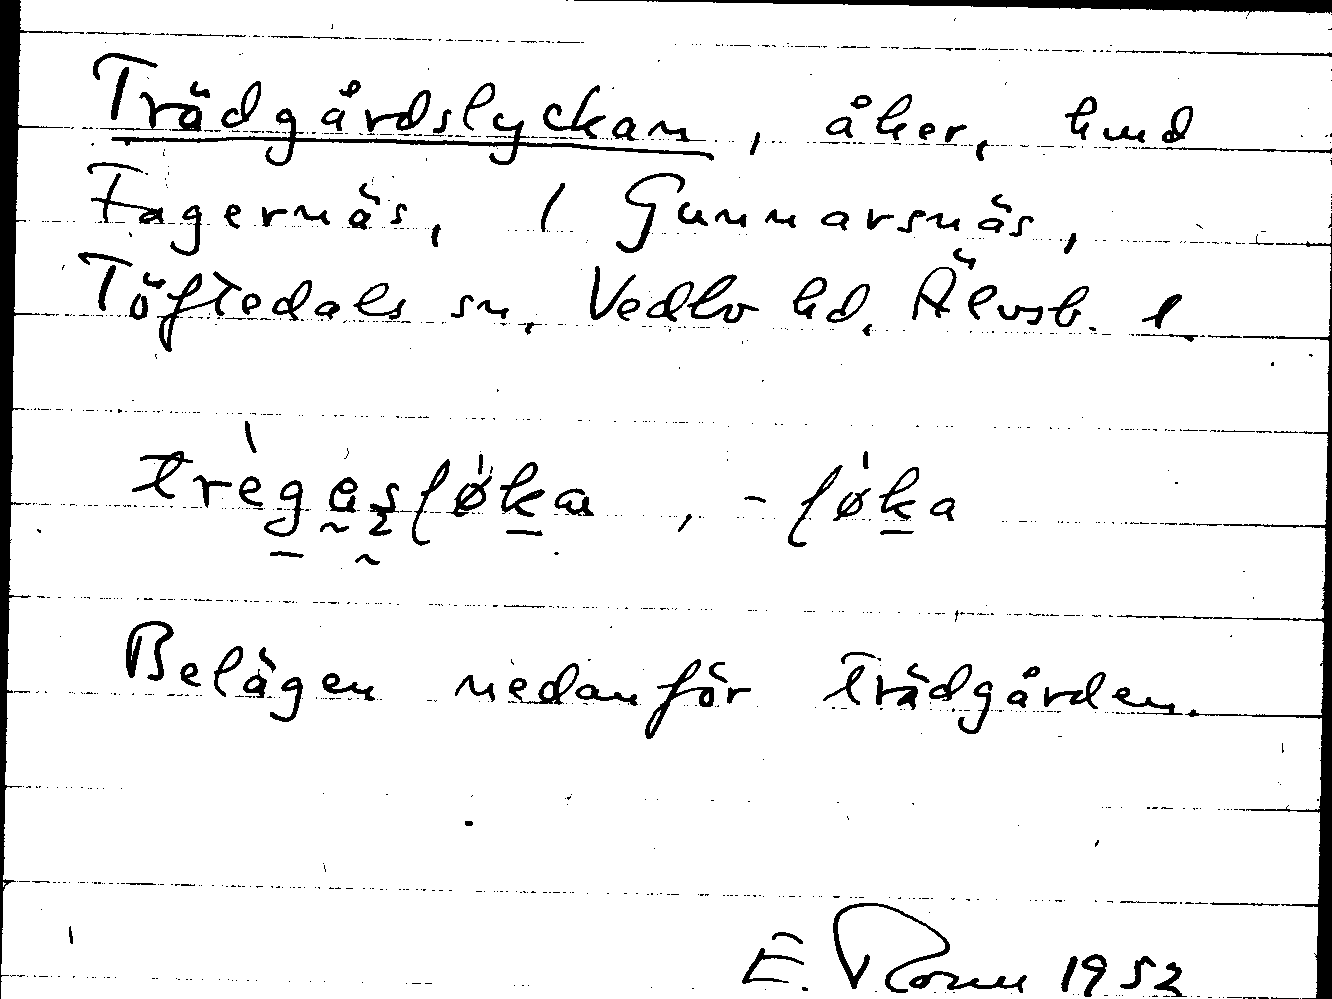 Trädgårdslyckan, åker, hmd
Fagernäs, 1 Gunnarsnäs,
Töftedals sn, Vedbo hd, Älvsb. l.
-løka
Belägen nedanför trädgården.
E. 1952